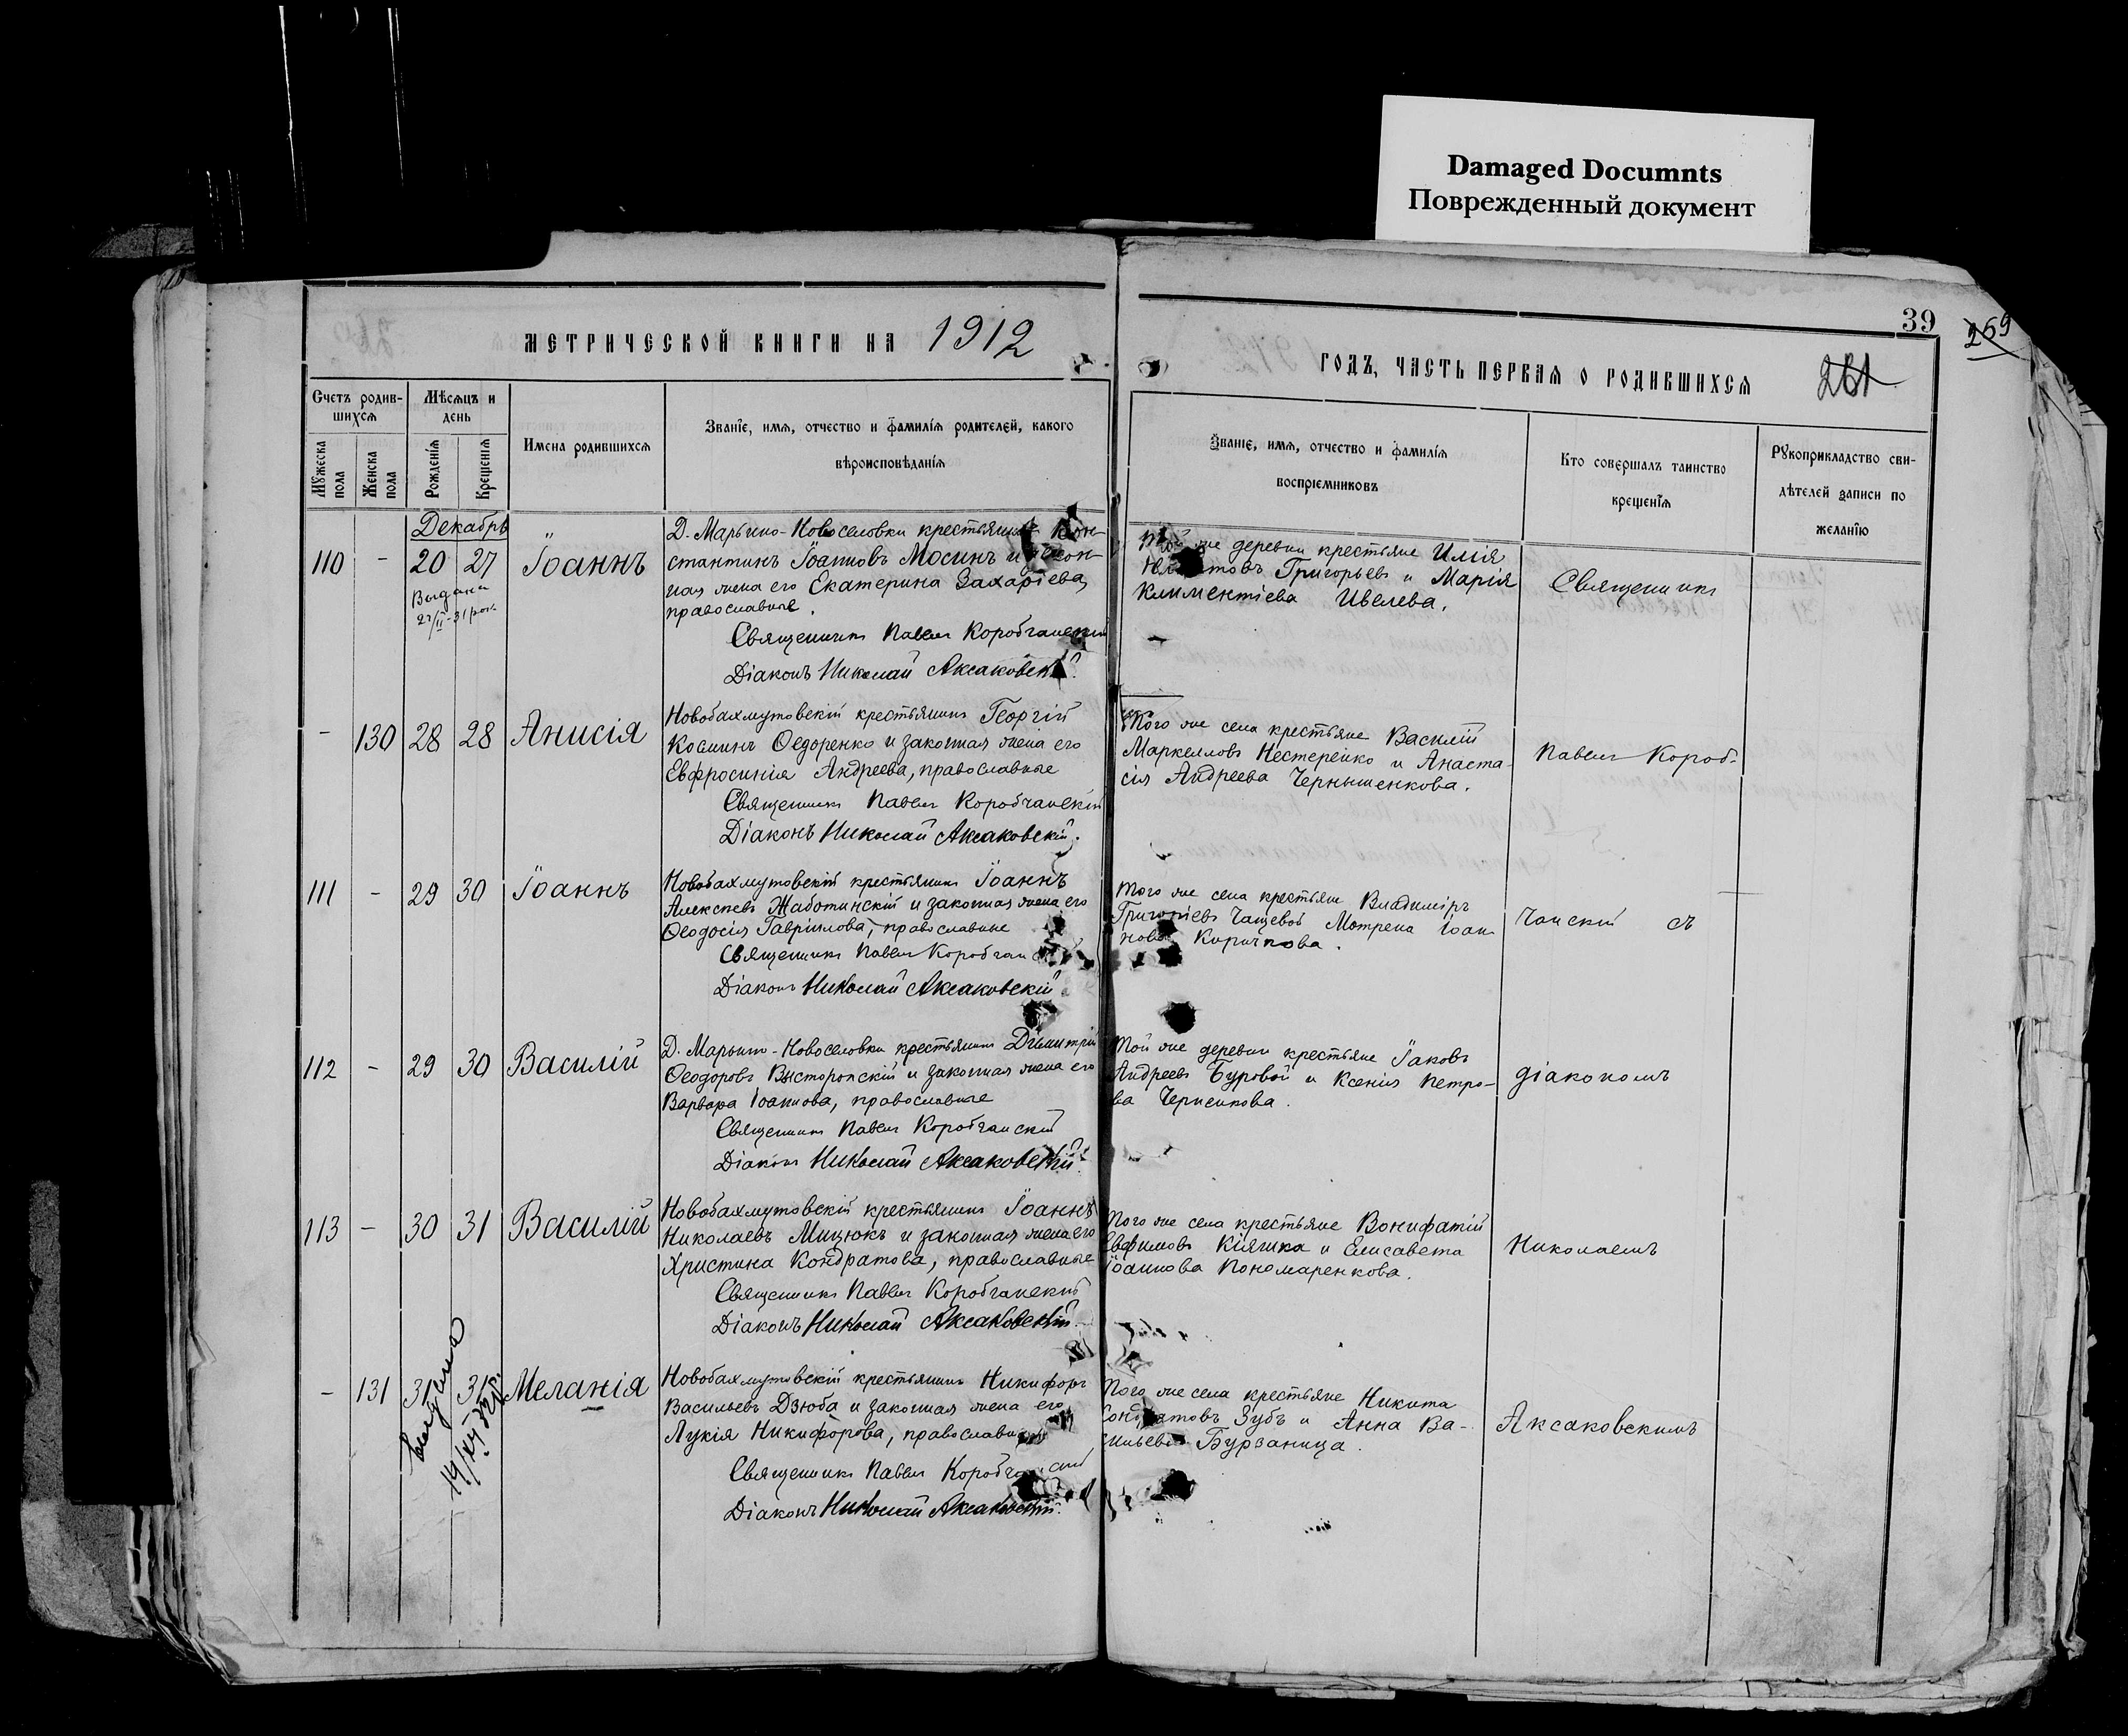 Damaged Documnts
Поврежденный документ
39
269
261
МЕТРИЧЕСКОЙ КНИГИ НА 1912
ГОДЪ, ЧАСТЬ ПЕРВАЯ О РОДИВШИХСЯ
Счетъ родив-
шихся
Мѣсяцъ и
день
Мужеска пола
Женска пола
Рожденія
Крещенія
Имена родившихся
Званіе, имя, отчество и фамилія родителей, какого
вѣроисповѣданія
Званіе, имя, отчество и фамилія
воспріемниковъ
Кто совершалъ таинство
крещенія
Рукоприкладство сви-
дѣтелей записи по
желанію
Декабрь
110 - 20 27 Іоаннъ
Выдана
Д. Марьино-Новоселовки крестьянинъ Кон-
стантинъ Іоанновъ Мосинъ и закон-
ная жена его Екатерина Захаріева,
православные.
Священникъ Павелъ Коробчанскій
Діаконъ Николай Аксаковскій.
Той же деревни крестьяне Илія
Григорьевъ и Марія
Климентіева Ивелева.
Священникъ
- 130 28 28 Анисія
Новобахмутовскій крестьянинъ Георгій
Косминъ Ѳедоренко и законная жена его
Евфросинія Андреева, православные
Священникъ Павелъ Коробчанскій
Діаконъ Николай Аксаковскій.
Того же села крестьяне Василій
Маркелловъ Нестеренко и Анаста-
сія Андреева Чернышенкова.
Павелъ Короб-
111 - 29 30 Іоаннъ
Новобахмутовскій крестьянинъ Іоаннъ
Алексѣевъ Жаботинскій и законная жена его
Ѳеодосія Гавріилова, православные
Священникъ Павелъ Коробчан
Діаконъ Николай Аксаковскій
Того же села крестьяне Владиміръ
Григоріевъ Чащевой Матрена Іоан-
нова Киричкова.
чанскій съ
112 - 29 30 Василій
Д. Марьино-Новоселовки крестьянинъ Димитрій
Ѳеодоровъ Высторопскій и законная жена его
Варвара Іоаннова, православные
Священникъ Павелъ Коробчанскій
Діаконъ Николай Аксаковскій.
Той же деревни крестьяне Іаковъ
Андреевъ Буровой и Ксенія Петро-
ва Черненкова.
діакономъ
113 - 30 31 Василій
Новобахмутовскій крестьянинъ Іоаннъ
Николаевъ Мицюкъ и законная жена его
Христина Кондратова, православные
Священникъ Павелъ Коробчанскій
Діаконъ Николай Аксаковскій.
Того же села крестьяне Вонифатій
Евфимовъ Кіяшка и Елисавета
Іоаннова Пономаренкова.
Николаемъ
- 131 31 31 Меланія
Выдана
Новобахмутовскій крестьянинъ Никифоръ
Васильевъ Дзюба и законная жена его
Лукія Никифорова, православные
Священникъ Павелъ Коробчанскій
Діаконъ Николай Аксаковскій.
Того же села крестьяне Никита
Кондратовъ Зубъ и Анна Ва-
сильева Бурзаница.
Аксаковскимъ